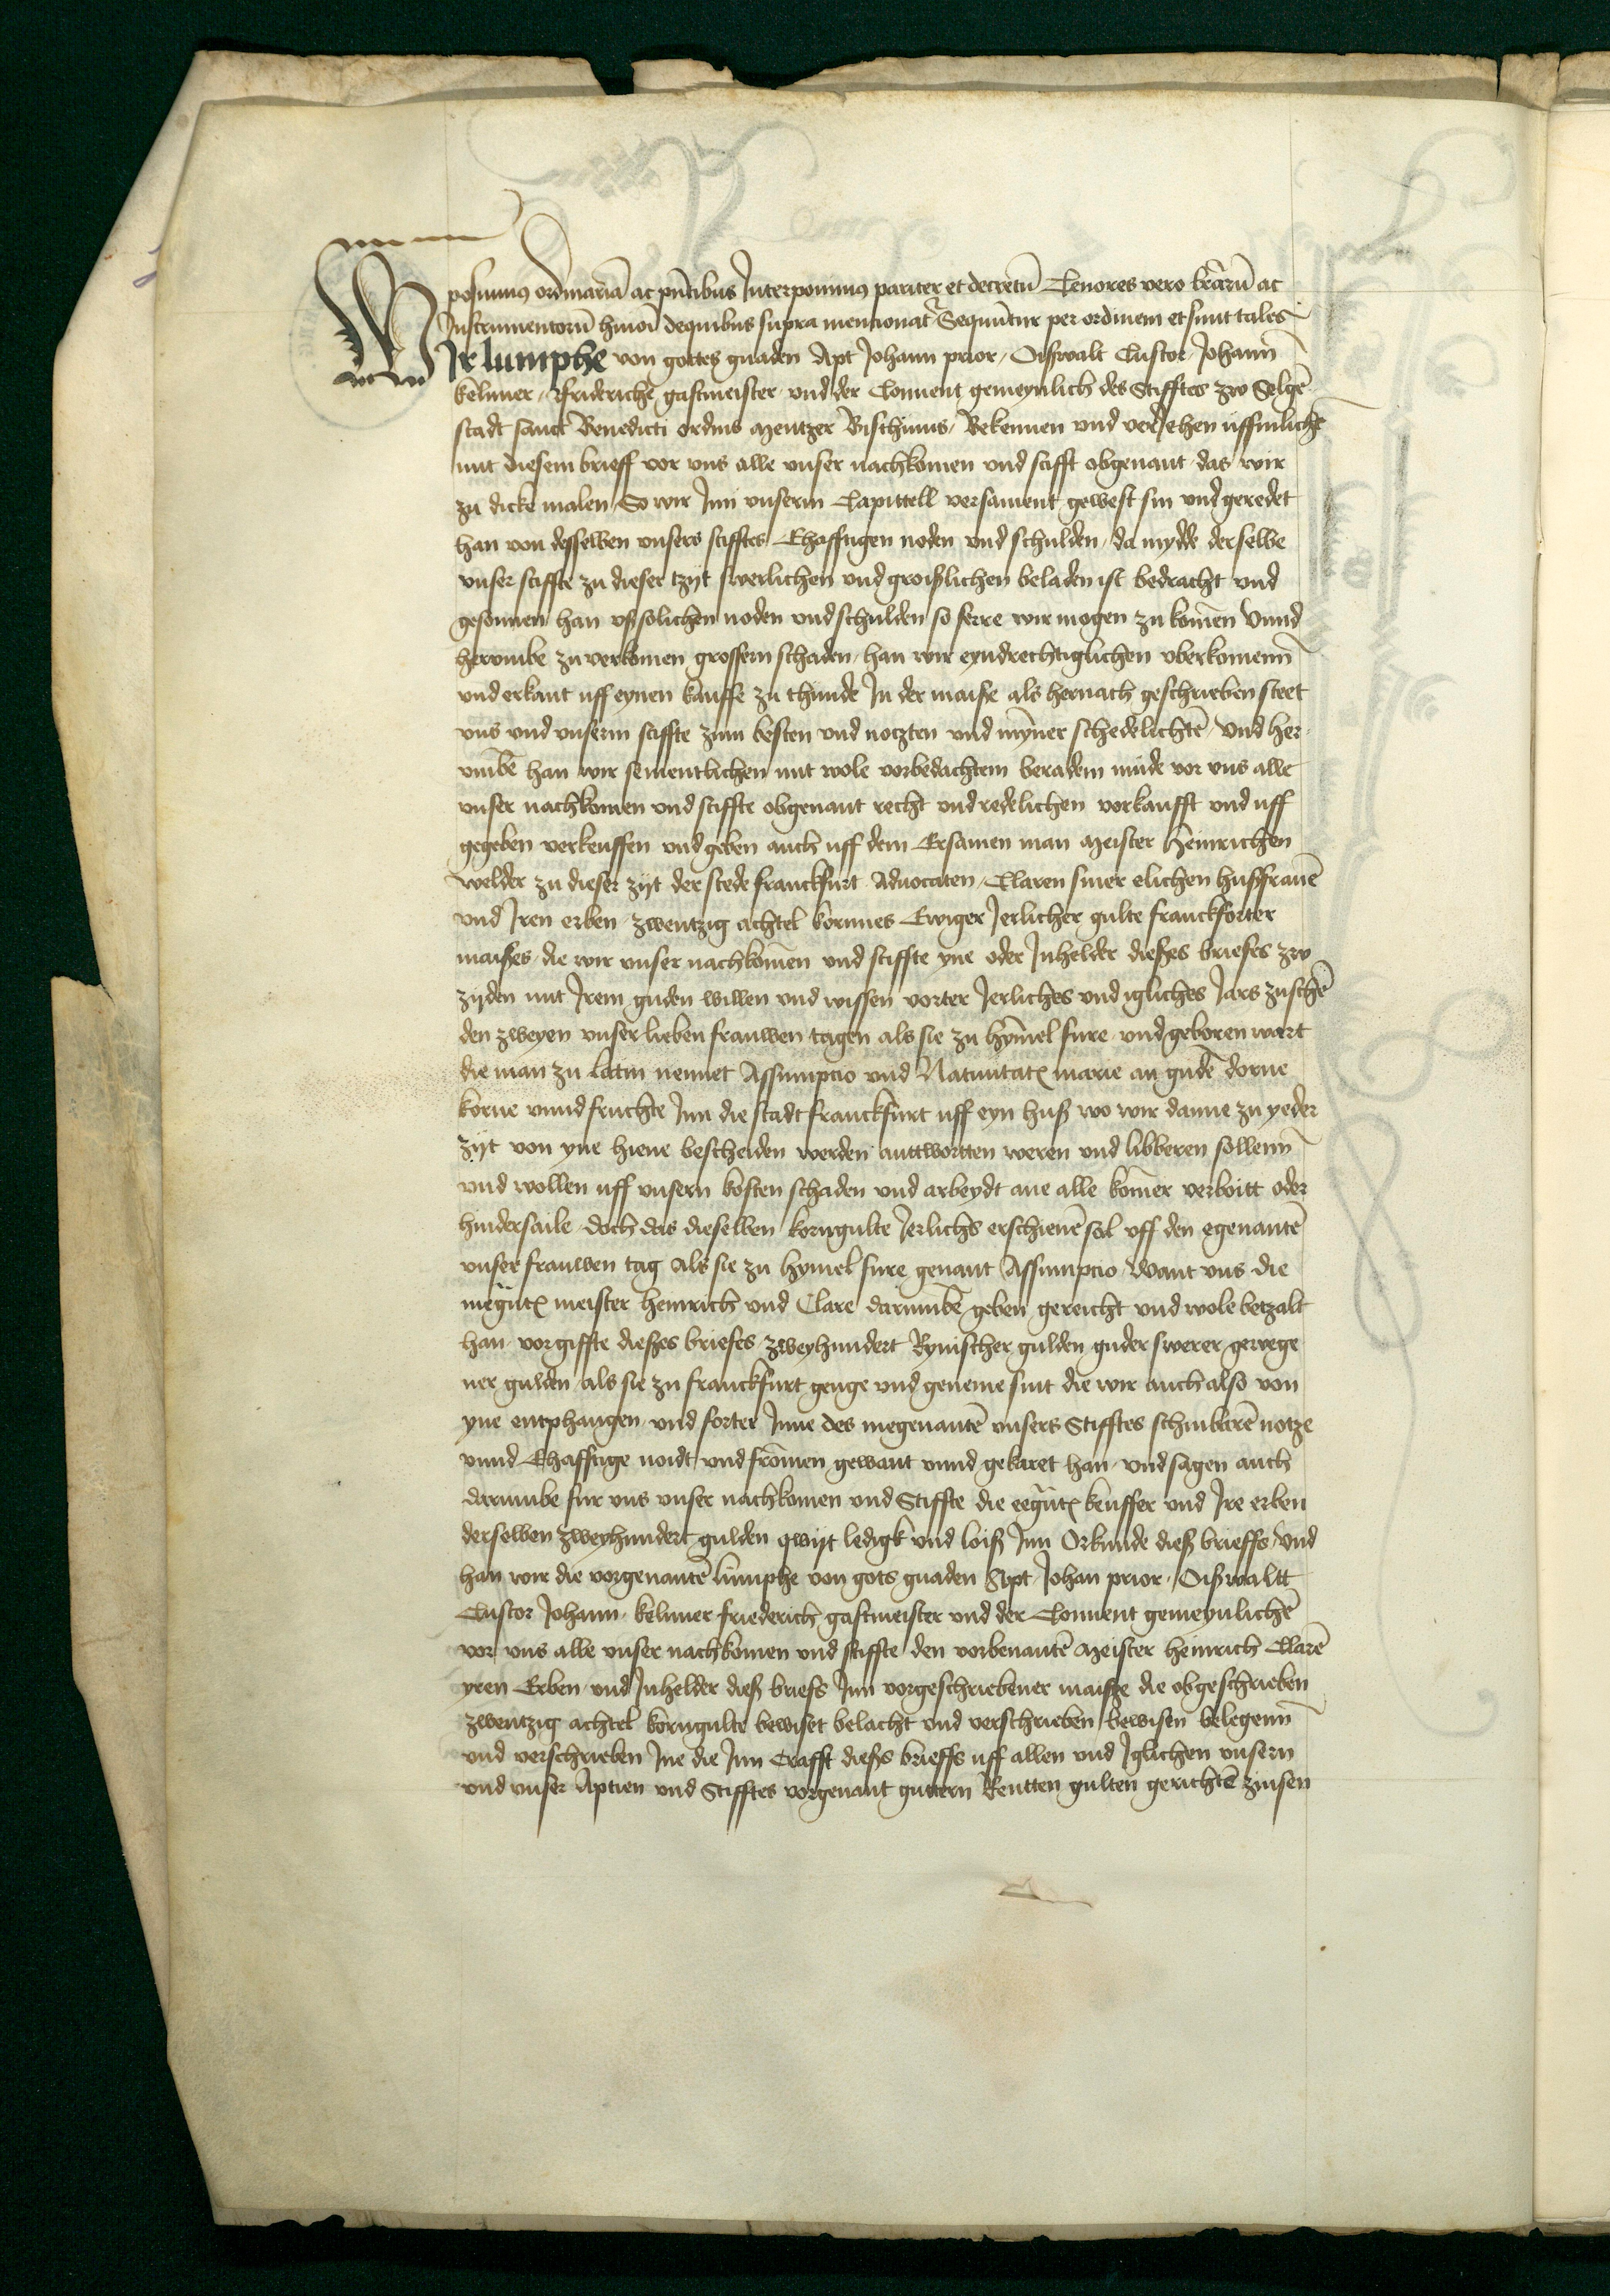 posuimus ordinariā ac pn̄tibus Interponimus pariter et decretū Tenores vero lr̄arū ac
Instrumentorū hmōi dequibus supra mencionat̄ Sequūtur per ordinem et sunt tales
Wir lumphe von gottes gnaden Apt Johann prior / Oiswalt Custor / Johann̄
kelnner / Friderichē gastmeister und der Conuent gemeynlich des Stifftes zw Selgē
stadt sanct Benedicti ordins Mentzer Bisthums / Bekennen und veriehen uffinlichē
mit diesem brieff vor uns alle unser nachkomen und stifft obgenant das wir
zu dicke malen So wir Inn unserm Capittell versament gewest sin und geredet
han von desselben unsers stifftes Ehafftigen noden und schulden / da mydde derselbe
unser stiffte zu dieser tzyt swerlichen und groißlichen beladen ist bedracht und
gesonnen han uß solichen noden und schulden so ferre wir mogen zu komēn Vnnd
herumbe zu verkomen grossern schaden / han wir eyndrechtiglichen uberkomenn̄
und erkant uff eynen kauffe zu thunde In der maise als hernach geschrieben steet
uns und unserm stiffte zum besten und notzten und mȳner schedelichtē / Vnd her
umbē han wir sementlichen mit wole vorbedachtem beradem mude vor uns alle
unser nachkomen und stiffte obgenant recht und redelichen vorkaufft und uff
gegeben verkeuffen und geben auch uff dem Ersamen man meister Heinrichen
welder zu dieser zijt der stede franckfurt Aduocaten / Claren siner elichen hußfrauē
und Iren erben / zwentzig achtel kornnes Ewiger Ierlicher gulte franckforter
maißes / die wir unser nachkomēn und stiffte yne oder Inhelder dießes briefes zw
zijden mit Irem guden willen und wissen vorter Ierliches und igliches Iars zuschē
den zweyen unser lieben frauwen tagen als sie zu hȳmel fure und geboren wart
die man zu latin nennet Assumpcio und Natiuitatꝭ marie an gudē dorne
korne unnd fruchte Inn die stadt franckfurt uff eyn huß wo wir danne zu yeder
zijt von yne hiene bescheiden werden anttwortten weren und libberen sollenn̄
und wollen uff unsern kosten schaden und arbeydt ane alle komēr verboitt oder
hindersaile / doch das dieselben korngulte Ierlichs erschienē sal uff den egenantē
unser frauwen tag als sie zu hymel fure genant Assumpcio / Want uns die
megn̄tꝭ meister Heinrich und Clare darumbē geben gereicht und wole betzalt
han / vor giffte dießes briefes zweyhundert Rynischer gulden guder swerer gewege
ner gulden / als sie zu franckfurt genge und geneme sint die wir auch also von
yne entphangen und forter Inne des megenantē unsers Stifftes schinbarē notze
unnd Ehafftige noidt und fromēn gewant unnd gekaret han / und sagen auch
darumbe fur uns unser nachkomen und Stiffte die eegn̄tꝭ keuffer und Ire erben
derselben zweyhundert gulden qwijt ledigk und loiß Inn Orkunde dieß brieffs / Und
han wir die vorgenantē lumphe von gots gnaden Apt / Johan prior / Oißwaltt
Custor Johann / kelnner friederich gastmeister und der Conuent gemeynlichē
vor uns alle unser nachkomen und stiffte den vorbenantē meister heinrich Clarē
yren Erben und Inhelder dieß briefs Inn vorgeschriebener maiße die obgeschrieben
zwentzig achtel korngulte bewiset belacht und verschrieben bewisen belegenn̄
und verschrieben Ine die Inn Crafft dießs brieffs uff allen und Iglichen unsern
und unser Aptien und Stifftes vorgenant guttern Rentten gulten gerichtē zinsen